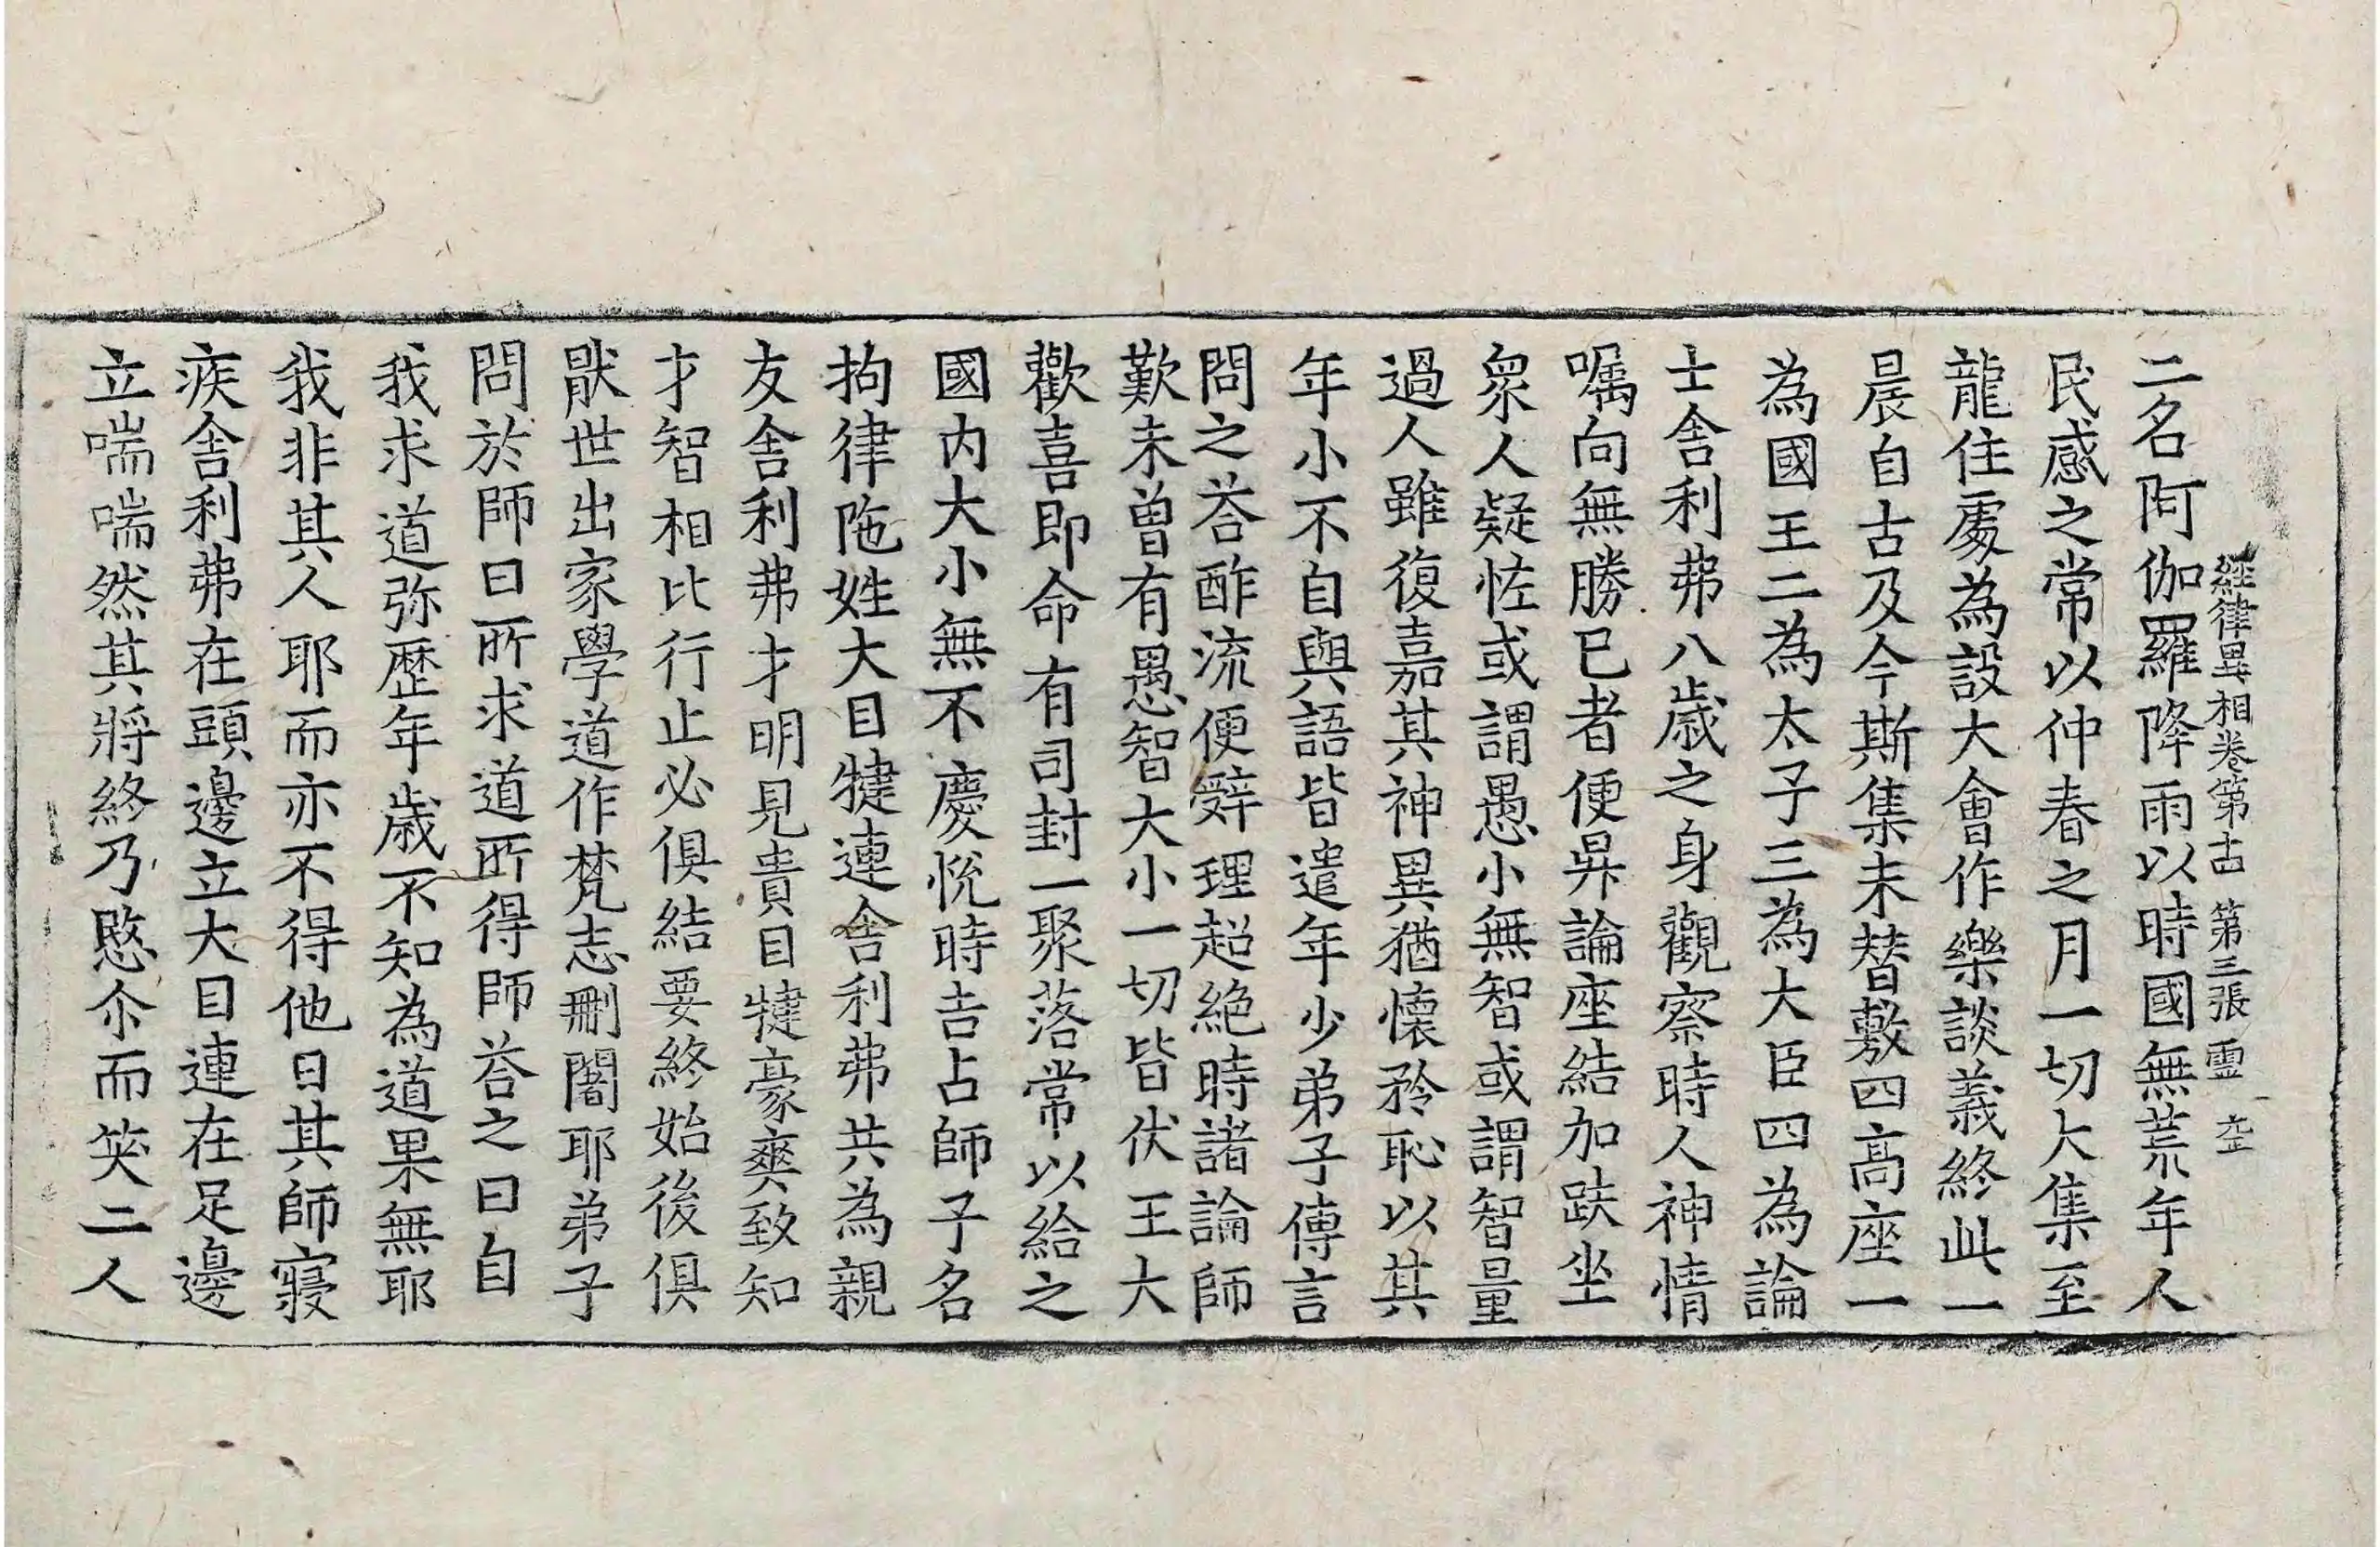 經律異相卷第十四 第三張 靈
二名阿伽羅降雨以時國無荒年人
民感之常以仲春之月一切大集至
龍住處為設大會作樂談義終此一
晨自古及今斯集未替敷四高座一
為國王二為太子三為大臣四為論
士舍利弗八歲之身觀察時人神情
嘱向無勝已者便昇論座結加趺坐
衆人疑恠或謂愚小無智或謂智量
過人雖復嘉其神異猶懷矜恥以其
年小不自與語皆遣年少弟子傳言
問之荅酢流便辭理超絶時諸論師
歎未曽有愚智大小一切皆伏王大
歡喜即命有司封一聚落常以給之
國内大小無不慶悅時吉占師子名
拘律陁姓大目揵連舍利弗共為親
友舍利弗才明見貴目揵豪爽致知
才智相比行止必俱結要終始後俱
猒世出家學道作梵志刪闍耶弟子
問於師曰所求道所得師荅之曰自
我求道弥歷年歲不知為道果無耶
我非其人耶而亦不得他日其師寢
疾舍利弗在頭邊立大目連在足邊
立喘喘然其將終乃愍尒而笑二人